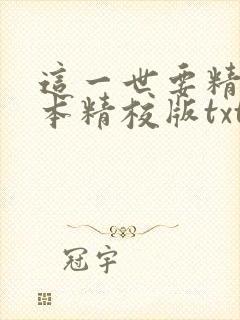 這一世要精
本精校版txt
冠宇